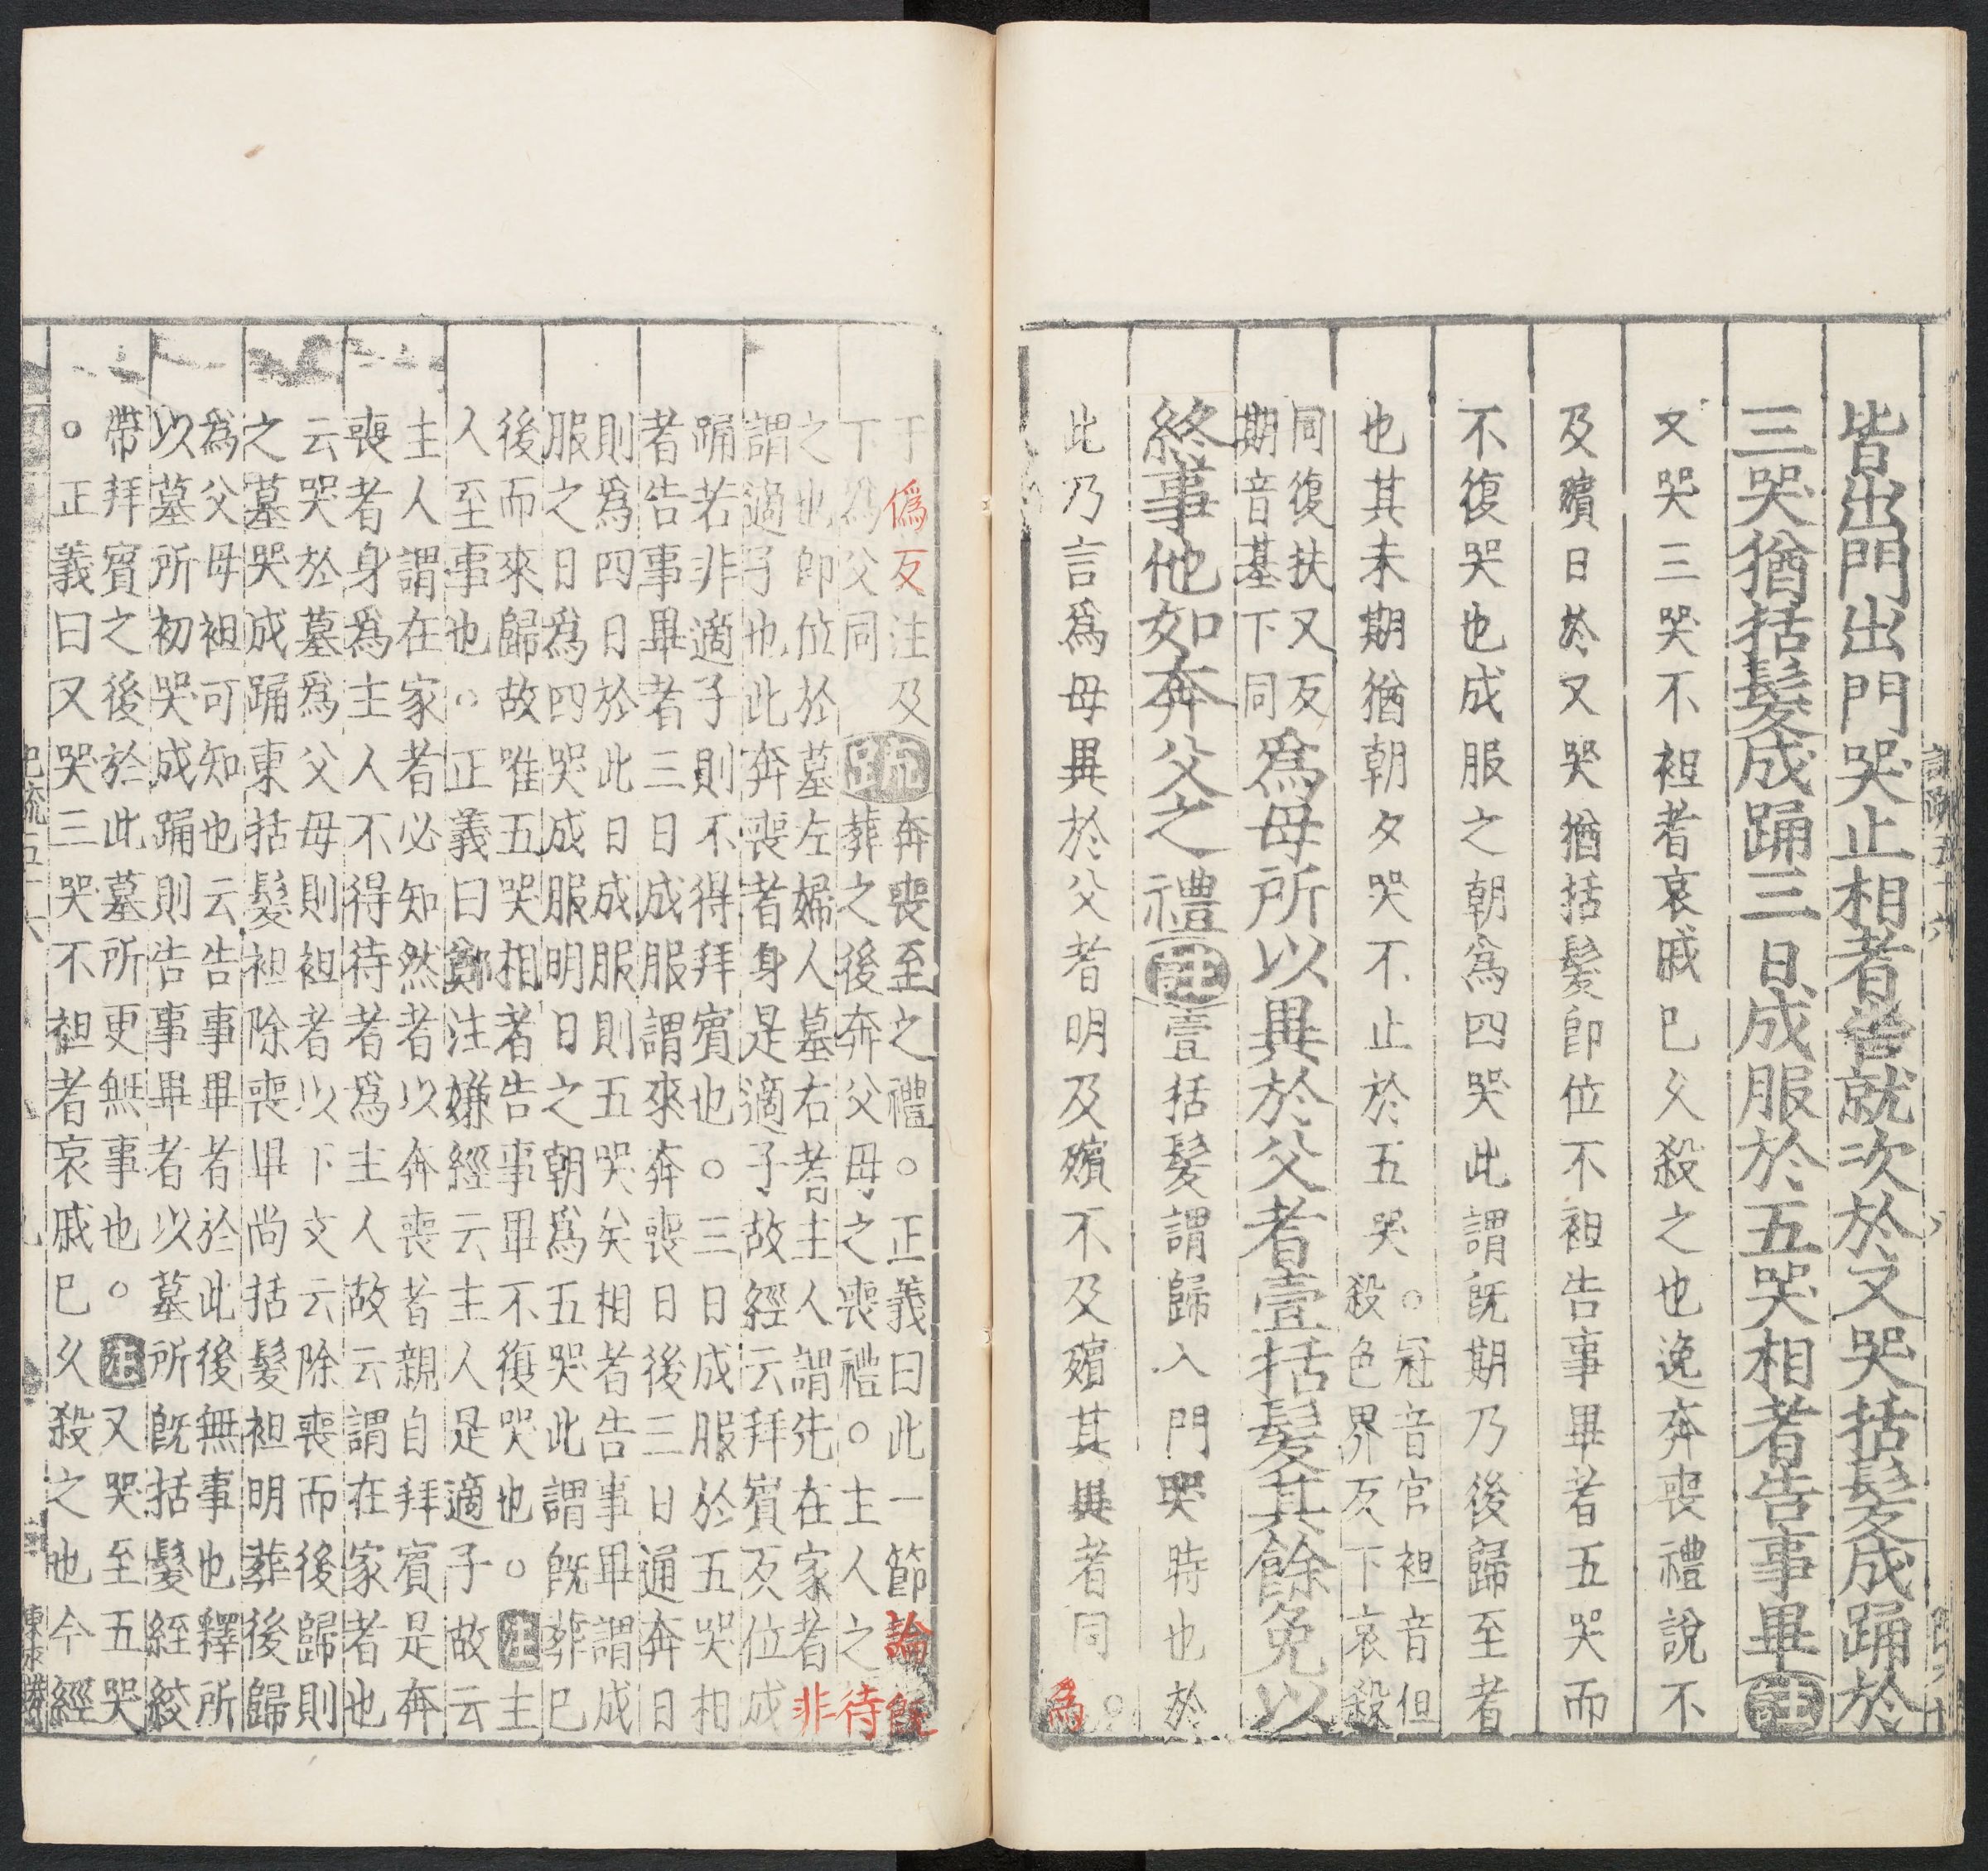 記疏五十六
皆出門出門哭止相者告就次於又哭括髮成踊於
三哭猶括髮成踊三日成服於五哭相者告事畢註
又哭三哭不袒者哀戚已久殺之也逸奔喪禮說不
及殯日於又哭猶括髮即位不袒告事畢者五哭而
不復哭也成服之朝爲四哭此謂旣期乃後歸至者
也其未期猶朝夕哭不止於五哭。冠音官袒音但
殺色界反下哀殺
同復扶又反
期音基下同
爲母所以異於父者壹括髮其餘免以
終事他如奔父之禮註壹括髮謂歸入門哭時也於
此乃言爲母異於父者明及殯不及殯其異者同。
爲
于僞反注及
下爲父同
疏
奔喪至之禮。正義曰此一節論旣
葬之後奔父母之喪禮。主人之待
之也即位於墓左婦人墓右者主人謂先在家者非
謂適子也此奔喪者身是適子故經云拜賓反位成
踊若非適子則不得拜賓也。三日成服於五哭相
者告事畢者三日成服謂來奔喪日後三日通奔日
則爲四日於此日成服則五哭矣相者告事畢謂成
服之日爲四哭成服明日之朝爲五哭此謂旣葬已
後而來歸故唯五哭相者告事畢不復哭也。注主
人至事也。正義曰鄭注嫌經云主人是適子故云
主人謂在家者必知然者以奔喪者親自拜賓是奔
喪者身爲主人不得待者爲主人故云謂在家者也
云哭於墓爲父母則袒者以下文云除喪而後歸則
之墓哭成踊東括髮袒除喪畢尚括髮袒明葬後歸
爲父母袒可知也云告事畢者於此後無事也釋所
以墓所初哭成踊則告事畢者以墓所旣括髮絰絞
帶拜賓之後於此墓所更無事也。注又哭至五哭
。正義曰又哭三哭不袒者哀戚已久殺之也今經